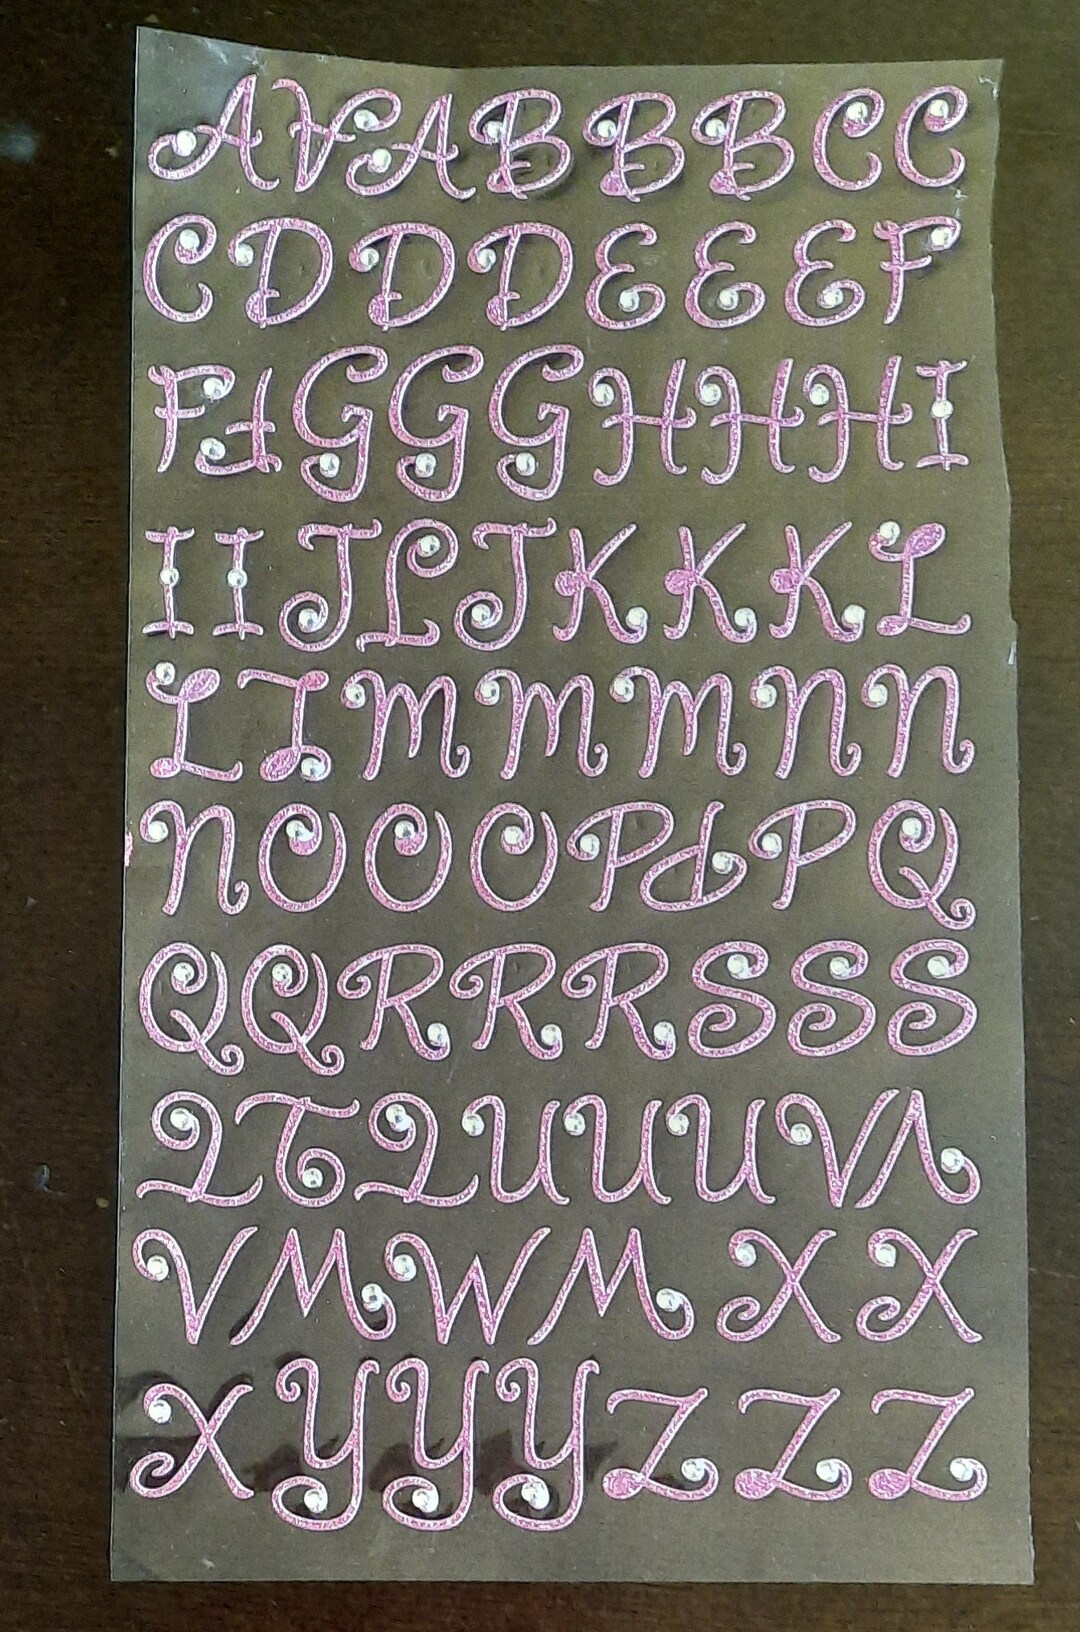 A A A B B B C C
C D D D E E E F
F F G G G H H H I
I I J J J K K K L
L L M M M N N
N O O O P P P Q
Q Q R R R S S S
T T T U U U V V
V W W W X X
X Y Y Y Z Z Z